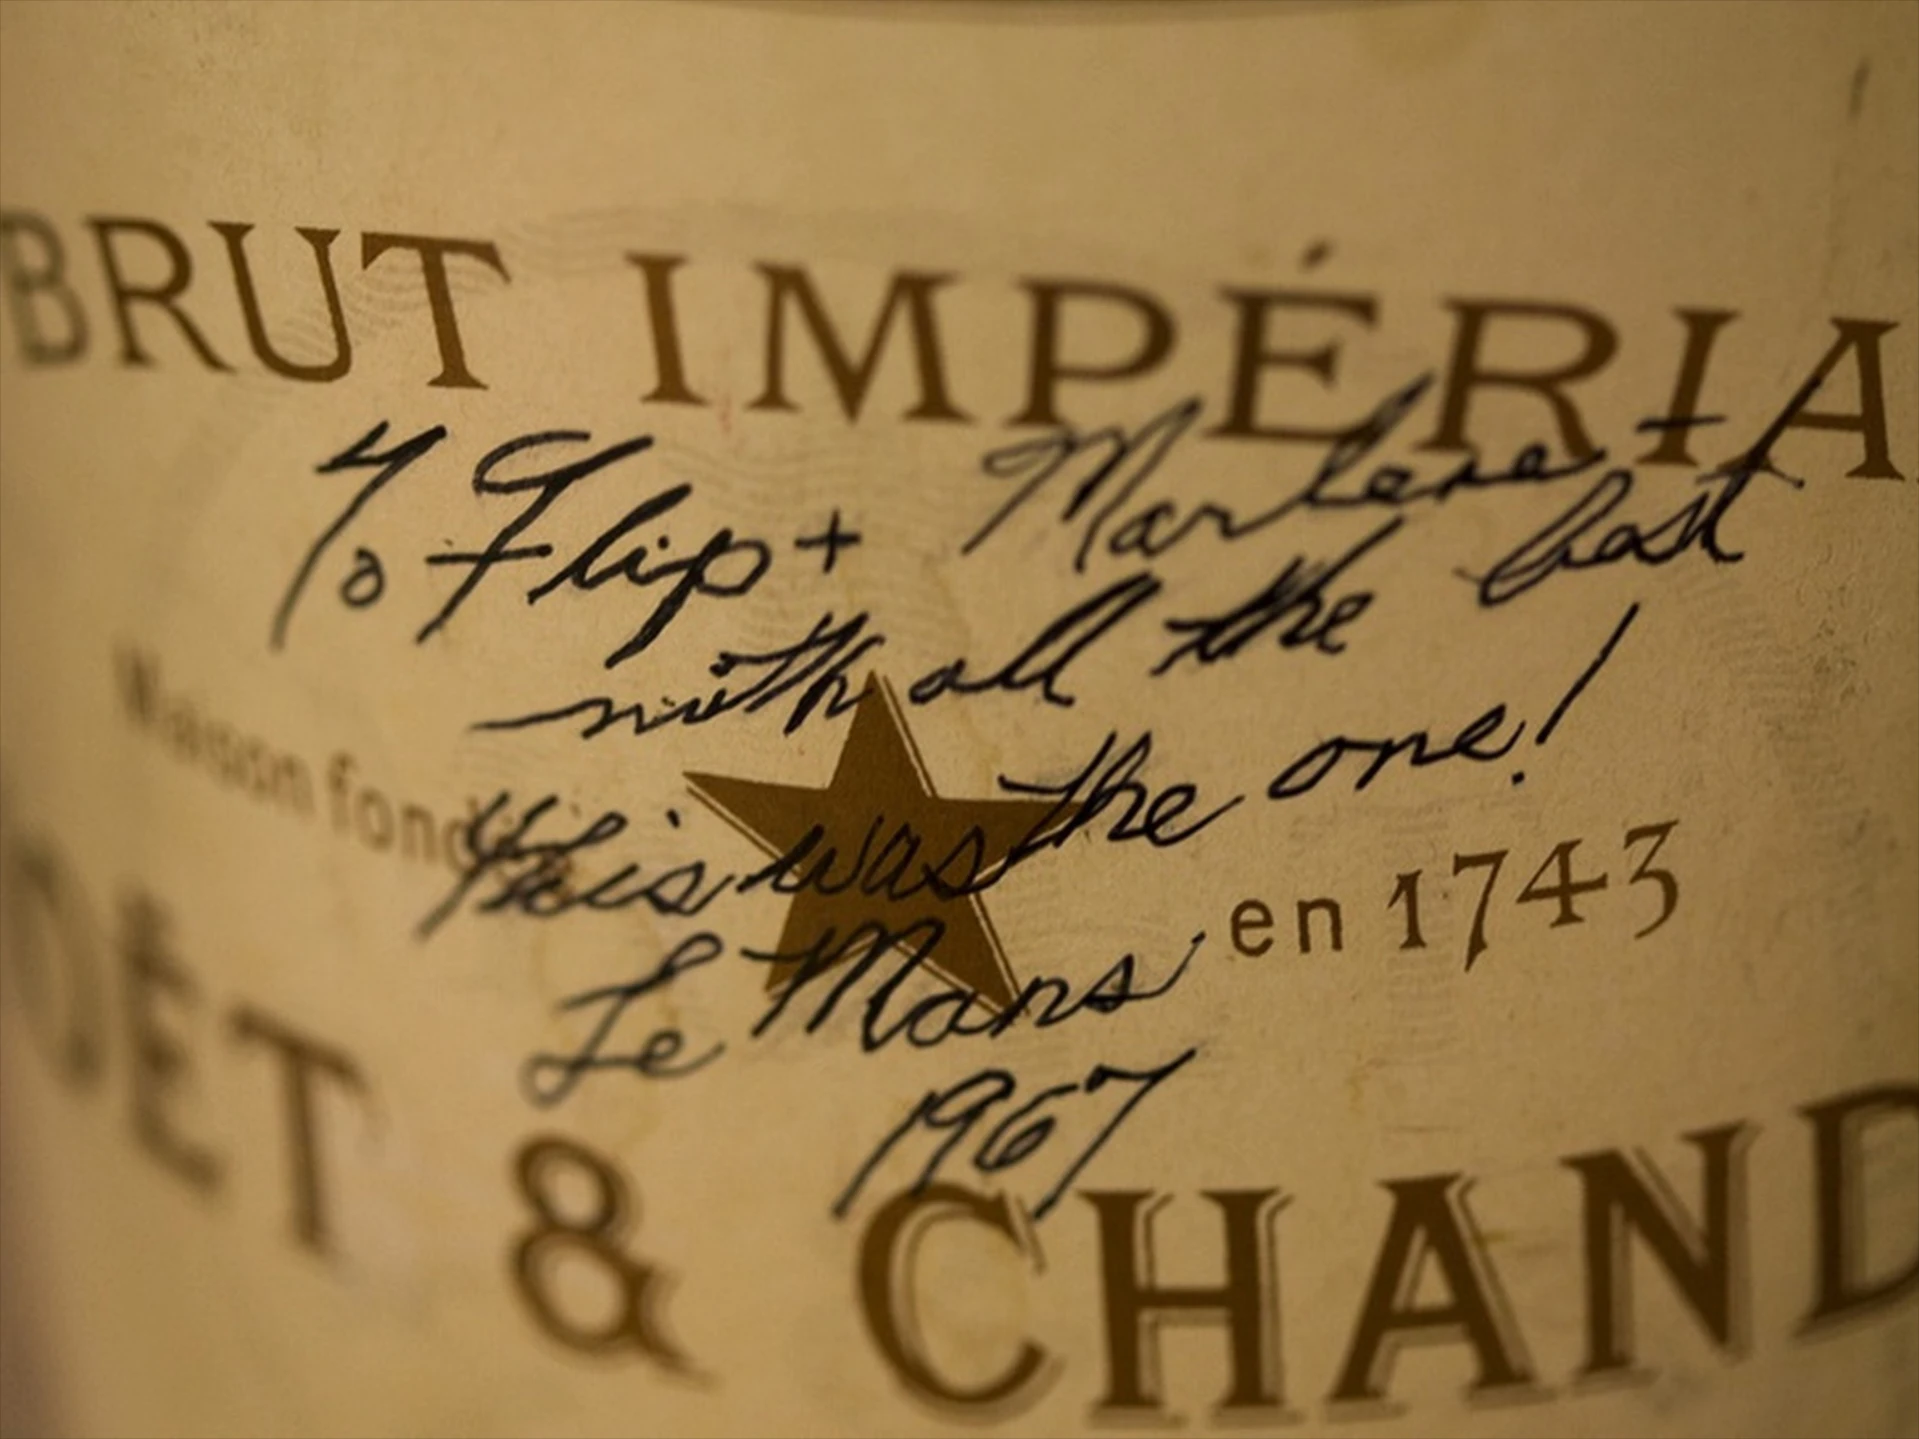 BRUT IMPÉRIA
To Flip + Marlene -
with all the best
This was the one!
Le Mans
1967
Maison fondée en 1743
OËT & CHAND